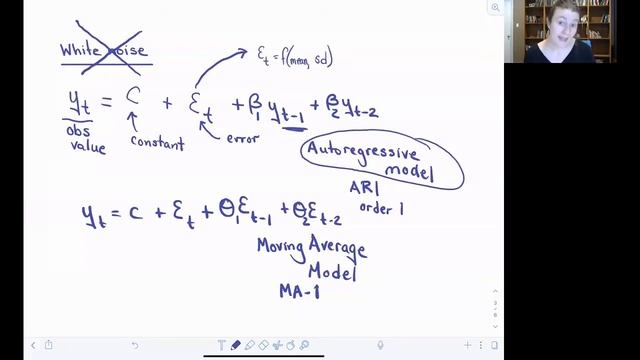 White noise
εt = f(mean, sd)
yt = C + εt + β1 yt-1 + β2 yt-2
obs value
constant
error
Autoregressive
model
AR1
order 1
yt = c + εt + θ1εt-1 + θ2εt-2
Moving Average
Model
MA-1